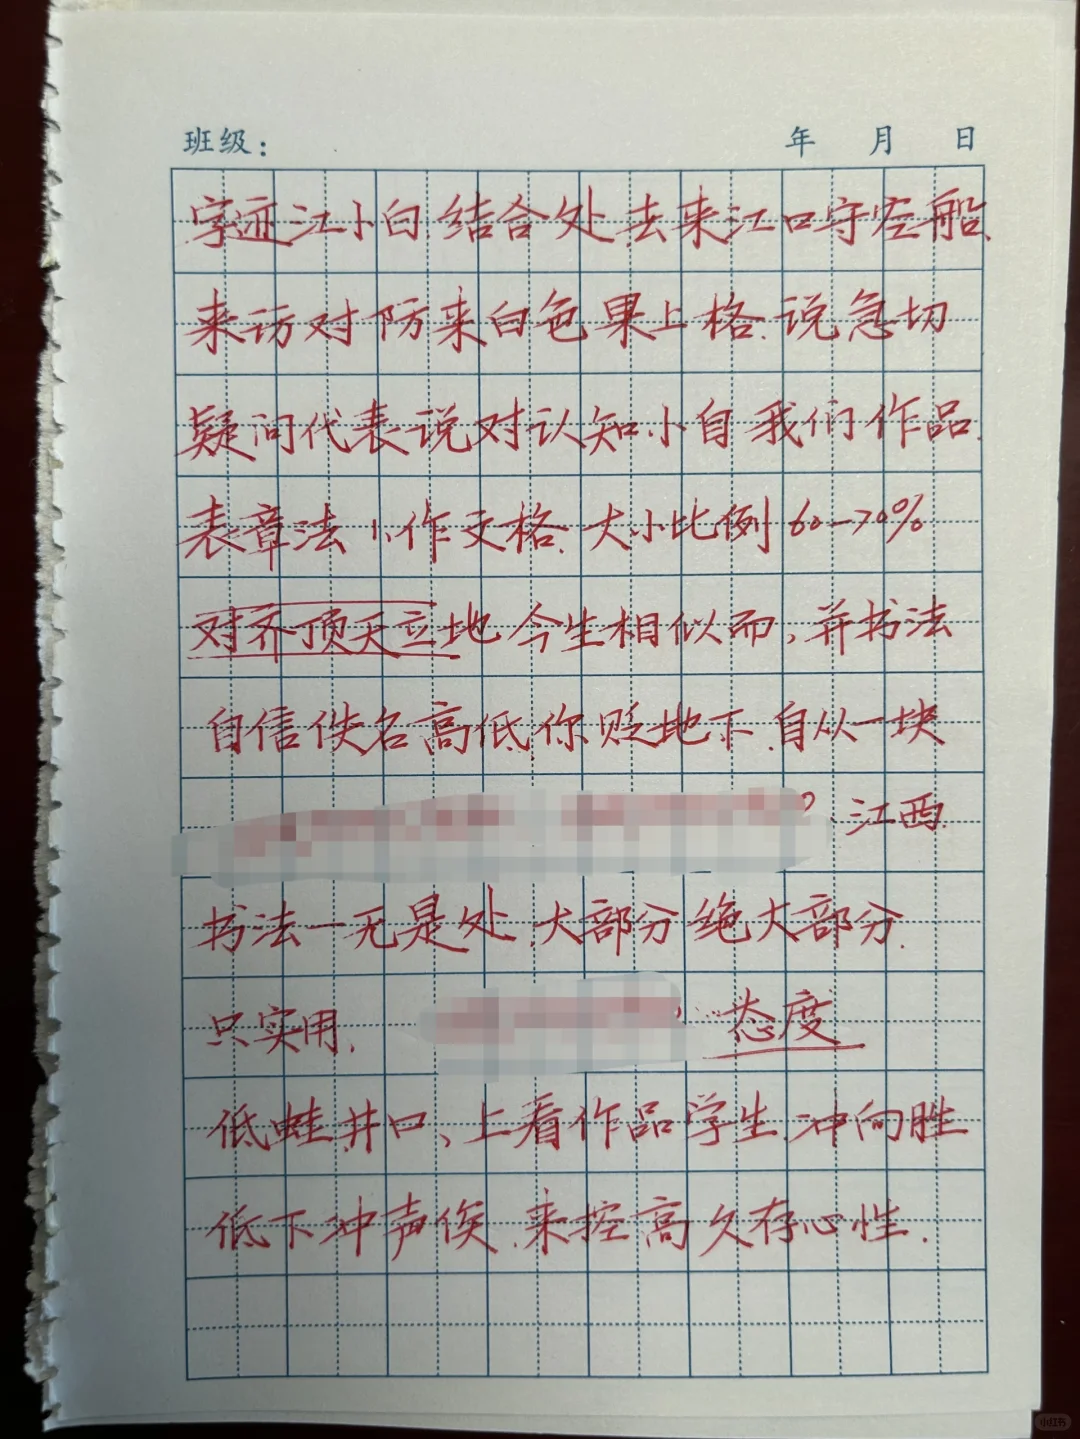 班级： 年 月 日
字迹江小白结合处去来江口守空船
来访对防来白色果上格.说急切
疑问代表说对认知小自我们作品.
表章法小作文格.大小比例60—70%
对齐顶天立地今生相似而,并书法
自信佚名高低,你贬地下.自从一块
？江西.
书法一无是处,大部分绝大部分.
只实用. 态度
低蛙井口、上看作品学生.冲向胜
低下冲声俟.来控高久存心性.
小红书